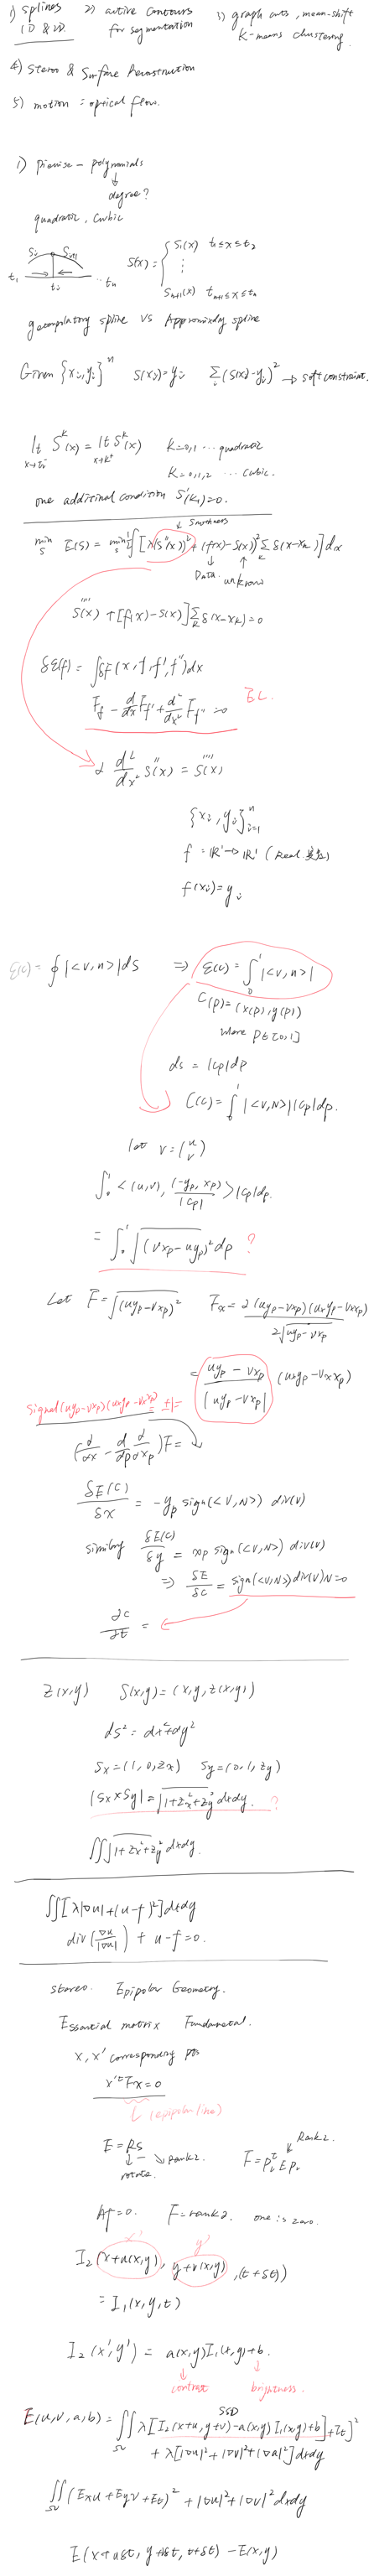 1) splines 2) active contours 3) graph cuts, mean-shift
1D & 2D. for segmentation K-means clustering.
4) Stereo & Surface Reconstruction
5) motion = optical flow.
1) Piecwise - polynomials
↓
degree?
quadratic, cubic
S(x) = { S₁(x) t₁≤x≤t₂
⋮
Sₙ₋₁(x) tₙ₋₁≤x≤tₙ
spline vs Approximating spline
Given {xᵢ, yᵢ}ⁿ S(xᵢ)=yᵢ Σᵢ(S(xᵢ)-yᵢ)² → soft constraint.
K=0,1 ... quadratic
K=0,1,2 ... cubic.
one additional condition S'(K₁)=0.
↓ Smoothness
min E(S) = min ∫[λ(S''(x))² + (f(x)-S(x))² Σ δ(x-xₖ)]dx
Data. unknown
S''''(x) + [f(x)-S(x)] Σ δ(x-xₖ)=0
δE(f) = ∫δF(x, f, f', f'')dx
F_f - d/dx F_f' + d²/dx² F_f'' = 0 EL.
d²/dx² S''(x) = S''''(x)
{xᵢ, yᵢ}ⁿᵢ₌₁
f = ℝ'→ℝ' (Real
f(xᵢ)=yᵢ
E(c) = ∮|<v,n>|ds ⇒ E(c) = ∫₀¹|<v,n>|
C(p)=(x(p), y(p))
where p∈[0,1]
ds = |Cp|dp
E(c) = ∫₀¹|<v,N>||Cp|dp.
let v=(u v)
∫₀¹<(u,v), (-yp, xp)/|Cp|>|Cp|dp.
= ∫₀¹√(vxp-uyp)² dp ?
Let F=√(uyp-vxp)² Fx = 2(uyp-vxp)(uxyp-vxxp) / 2√uyp-vxp
= (uyp-vxp)/|uyp-vxp| (uxyp-vxxp)
signed(uyp-vxp)(uxyp-vxxp) = ±1=
(d/dx - d/dp d/dxp)F=
δE(c)/δx = -yp sign(<V,N>) div(v)
similarly δE(c)/δy = xp sign(<V,N>) div(v)
⇒ δE/δc = sign(<V,N>)div(v)N=0
∂c/∂t =
Z(x,y) S(x,y)=(x,y,z(x,y))
ds²=dx²+dy²
Sx=(1,0,Zx) Sy=(0,1,Zy)
|Sx×Sy|=√1+Zx²+Zy² dxdy. ?
∬√1+Zx²+Zy² dxdy.
∬[λ|∇u|+(u-f)²]dxdy
div(∇u/|∇u|) + u-f=0.
stereo. Epipolar Geometry.
Essential matrix Fundamental.
x, x' corresponding pts
x'ᵗFx=0
L (epipolar line)
E=RS Rank2.
rotate. rank2. F=
Af=0. F=rank2. one is zero.
x' y'
I₂(x+u(x,y), y+v(x,y), (t+δt))
= I₁(x,y,t)
I₂(x',y') = a(x,y)I₁(x,y)+b.
contrast brightness.
SSD
E(u,v,a,b)= ∬λ[I₂(x+u,y+v)-a(x,y)I₁(x,y)+b]+It]²
+ λ[|∇u|²+|∇v|²+|∇a|²]dxdy
∬(Exu+Eyv+Et)²+|∇u|²+|∇v|²dxdy
E(x+uδt, y+vδt, t+δt) - E(x,y)